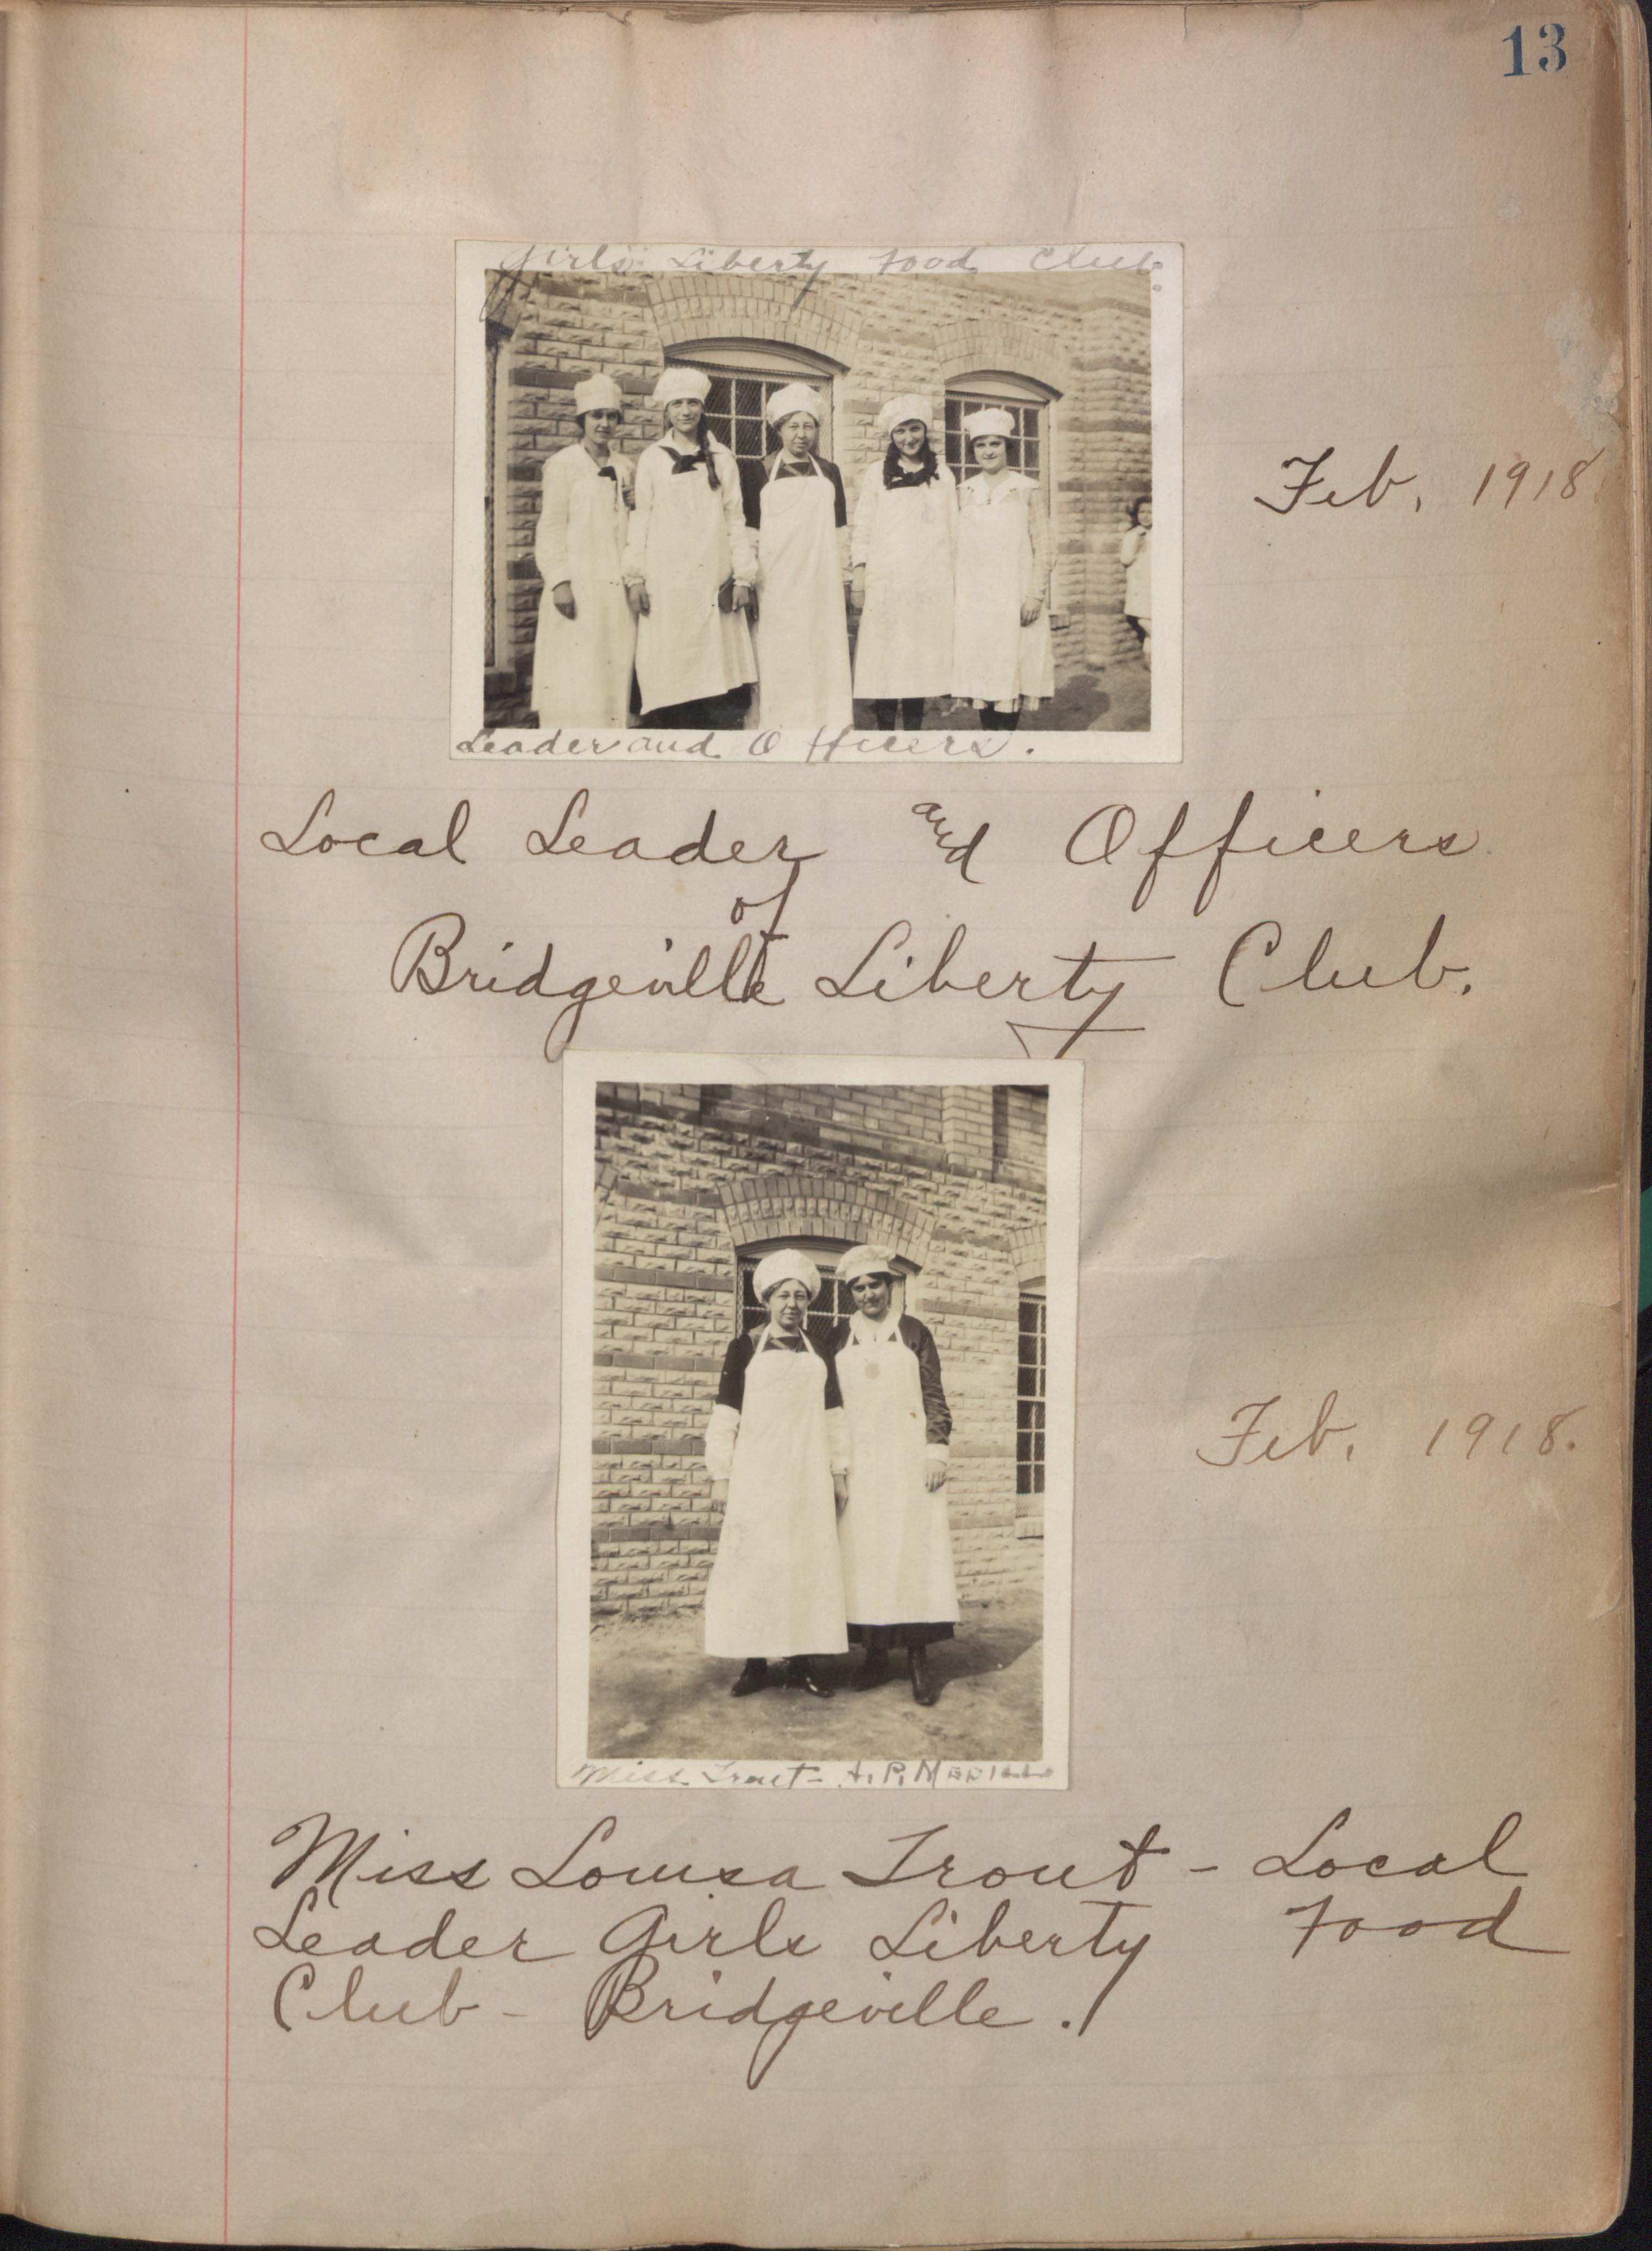 13
Girls' Liberty Food Club.
Feb. 1918
Leader and Officers.
Local Leader and Officers
of
Bridgeville Liberty Club.
Feb. 1918.
Miss Trout -
Miss Louisa Trout - Local
Leader Girls Liberty Food
Club - Bridgeville.